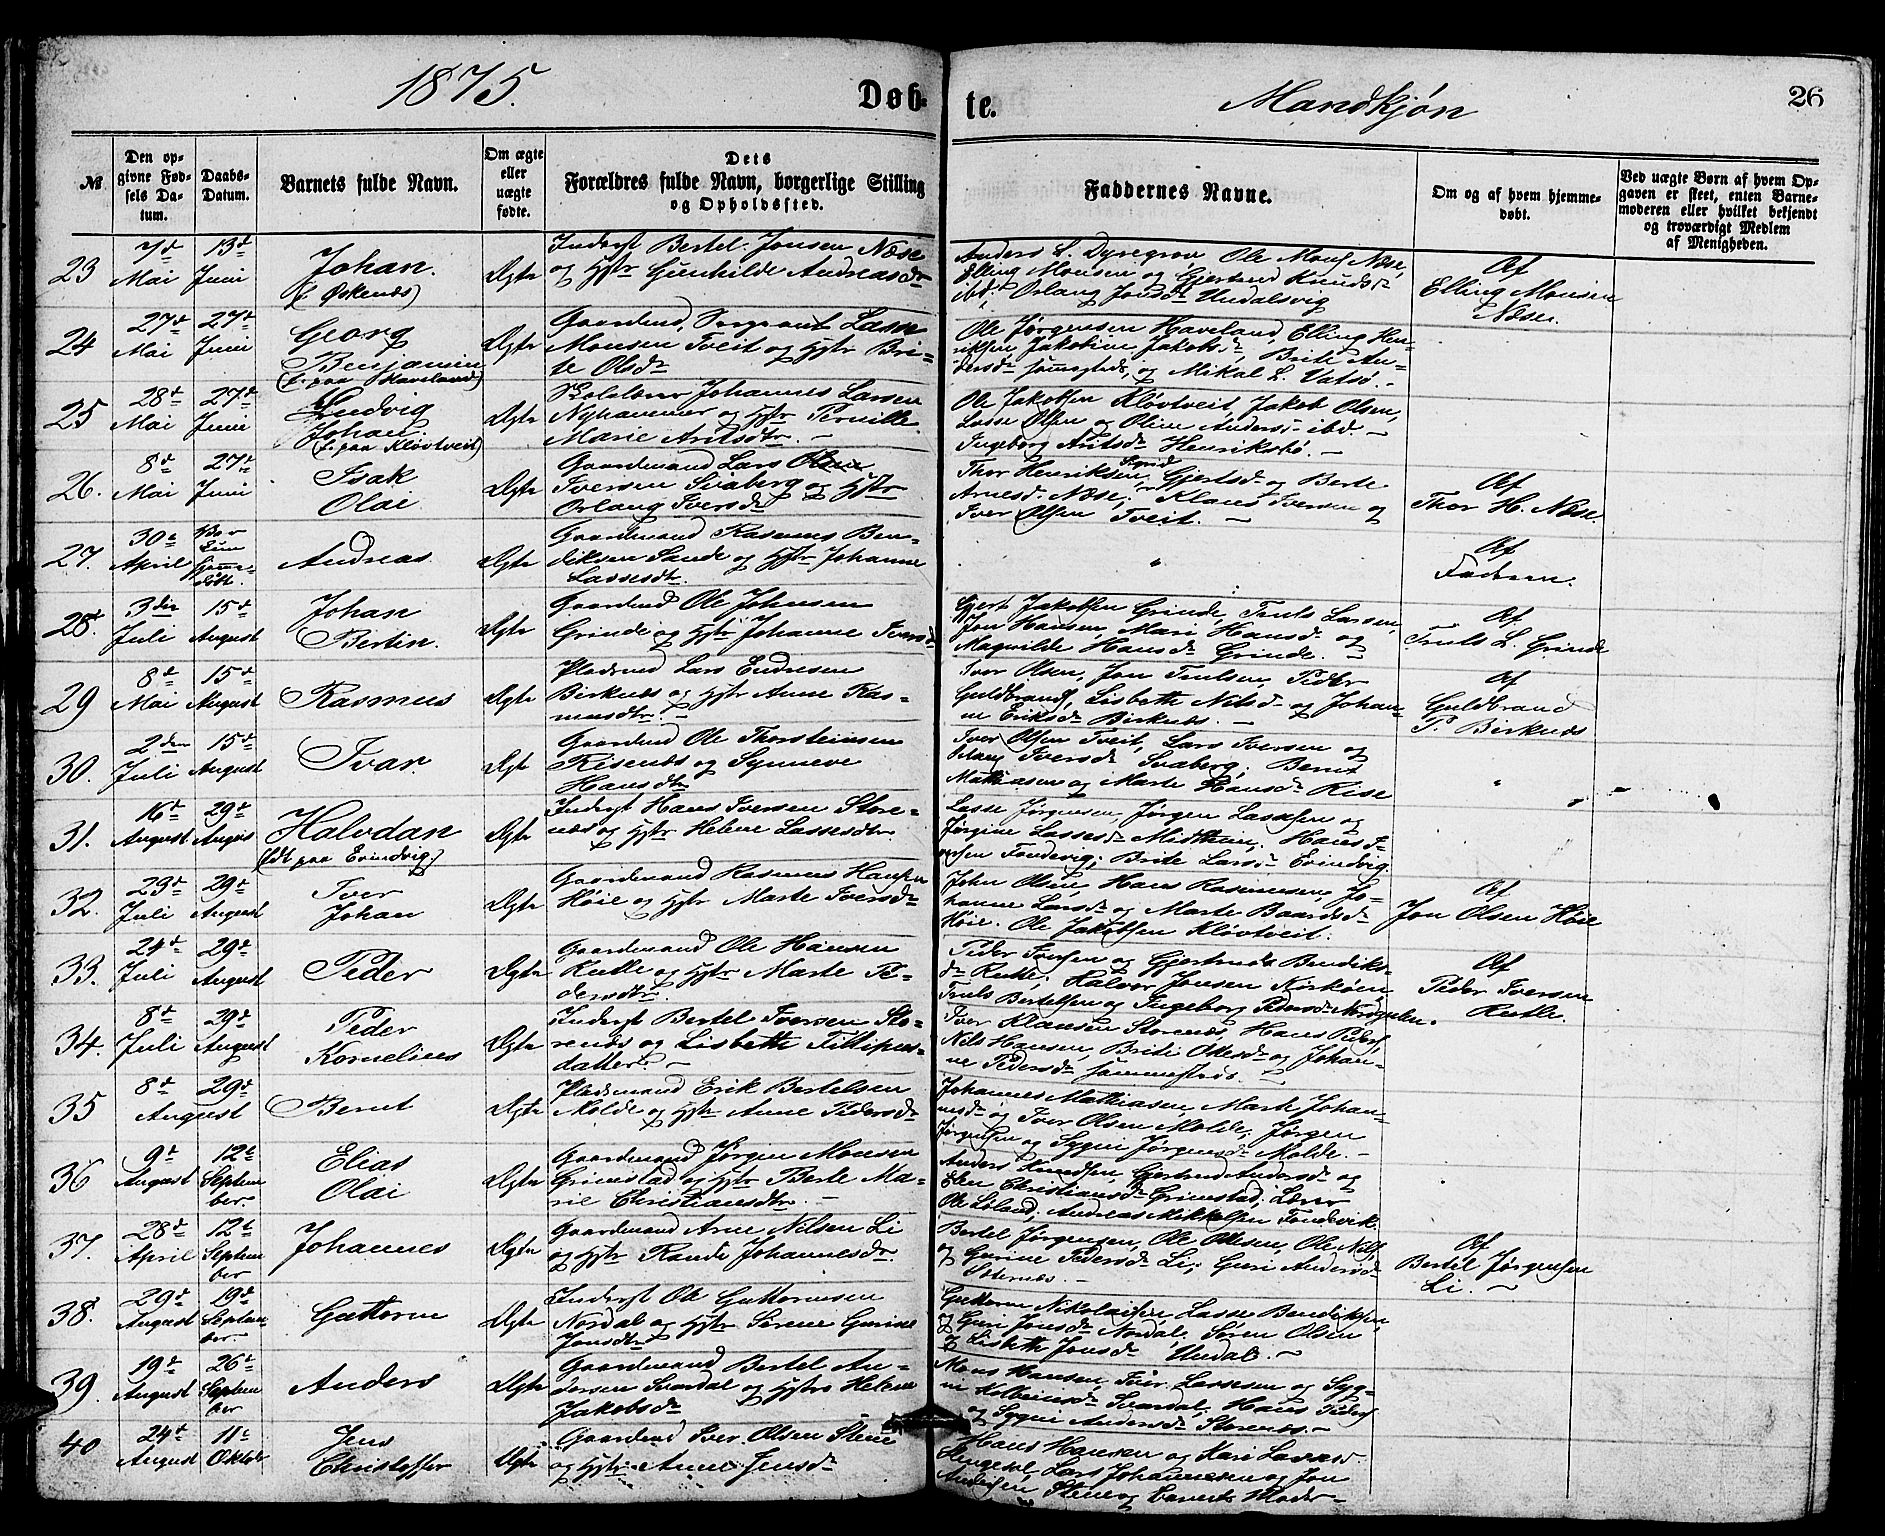 1875.
Døb-
te.
Mandkjøn
26
№
Den op-
givne Fød-
sels Da-
tum.
Daabs-
Datum.
Barnets fulde Navn.
Om ægte
eller
uægte
fødte.
Dets
Forældres fulde Navn, borgerlige Stilling
og Opholdssted.
Faddernes Navne.
Om og af hvem hjemme-
døbt.
Ved uægte Børn af hvem Op-
gaven er skeet, enten Barne-
moderen eller hvilket bekjendt
og troværdigt Medlem
af Menigheden.
23
7d
Mai
13d
Juni
Johan.
(f. Øskenæs)
Ægte
Inderst Bertel Jonsen Næse
og Hstr Gunhilde Andreasdr
Anders L. Dyregrov, Ole Mons Næse,
Elling Monsen og Gjertrud Knudsdr
ibd; Orlaug Jonsdr Undalsvig
Af
Elling Monsen
Næse.
24
27d
Mai
27d
Juni
Georg
Benjamin
(f. paa Haveland)
Ægte
Gaardmd, Sergeant Lasse
Monsen Tveit og Hstr Bri-
te Olsdr
Ole Jørgensen Haveland, Elling Hen-
riksen Jakobine Jakobsdr, Brite An-
dersdr sammesteds, og Mikal L. Vatsø.-
25
28d
Mai
27d
Juni
Ludvig
Johan
(f. paa Kløvtveit)
Ægte
Johannes Larsen
Nyhammer og Hstr Pernille
Marie Antsdtr. -
Ole Jakobsen Kløvtveit, Jakob Olsen,
Lasse Olsen og Oline Andersdr ibd. -
Ingeborg Antsdr Henriksbø. -
26.
8d
Mai
27d
Juni
Isak
Olai
Ægte
Gaardmand Lars
Iversen Svaberg og Hstr
Orlaug Iversdr
Thor Henriksen, Sigrid Gjertsdr og Berte
Arnesdr Næse; Klaus Iversen og
Iver Olsen Tveit. -
Af
Thor H. Næse.
27.
30te
April
Andreas
Ægte
Gaardmand Rasmus Ben-
diksen Sande og Hstr Johanne
Lassesdtr.
Af
Faderen.
28.
3die
Juli
15d
August
Johan
Bertin.
Ægte
Gaardmd Ole Johnsen
Grinde og Hstr Johanne Iversdr
Gjert Jakobsen Grinde, Truls Larsen,
Jon Hansen, Mari Hansdr og
Magnilde Hansdr Grinde. -
Af
Truls L. Grinde
29
8d
Mai
15d
August
Rasmus
Ægte
Pladsmd Lars Endresen
Birknæs og Hstr Anne Ras-
musdtr. -
Iver Olsen, Jon Trulsen, Peder
Guldbrands, Lisbeth Nilsdr og Johan-
ne Eriksdr Birknæs. -
Af
Guldbrand
P. Birknæs
30.
2den
Juli
15d
August
Ivar.
Ægte
Gaardmd Ole Thorsteinsen
Risenæs og Synneve
Hansdtr
Iver Olsen Tveit, Lars Iversen og
Orlaug Iversdr Svaberg; Bernt
Mathiasen og Marte Hansdr Rise
31.
16d
August
29d
August
Halvdan
(født paa Evindvig.)
Ægte
Inderst Hans Iversen Store-
næs og Hstr Helene Lassesdtr.
Lasse Jørgensen, Jørgen Lassesen og
Jørgine Lassesdr Midtheim. Hans I-
versen Fondevig; Brite Larsdr Evindvig.
32.
23d
Juli
29d
August
Iver
Johan
Ægte
Gaardmand Rasmus Hansen
Høie og Hstr Marte Iversdr
John Olsen, Hans Rasmussen, Jo-
hanne Larsdr og Marte Baardsdr
Høie. Ole Jakobsen Kløvtveit.
Af
Jon Olsen Høie
33.
24d
Juli
29d
August
Peder
Ægte
Gaardmand Ole Hansen
Rutle og Hstr Marte Pe-
dersdtr.
Peder Iversen og Gjertrude Bendiks-
dr Rutle; Halvor Jonsen
Truls Bertelsen og Ingeborg Pedersdr
Af
Peder Iversen
Rutle.
34.
8d
Juli
29d
August
Peder
Kornelius
Ægte
Inderst Bertel Iversen Sto-
renæs og Lisbeth Fillipus-
datter. -
Iver Klausen Storenæs, Hans Peders,
Nils Hansen, Brite Olsdr og Johan-
ne Pedersdr sammesteds.
35
8d
29d
August
Bernt
Ægte
Pladsmand Erik Bertelsen
Molde og Hstr Anne Pedersdr
Johannes Mathiasen, Marte Johan-
nesdr og Iver Olsen Molde, Jørgen
Jørgensen og Sygni Jørgensdr Molde. -
36
9d
August
12te
Septem-
ber.
Elias
Olai
Ægte
Gaardmand Jørgen Monsen
Grimstad og Hstr Berte Ma-
rie Christiansdtr. -
Anders Knudsen, Gjertrud Andersdr og
Elen Christiansdr Grimstad; Lærer
Ole Løland; Andreas Mikkelsen Fondevik.
37.
28d
April
12te
Septem-
ber
Johannes
Ægte
Gaardmand Arne Nilsen Li
og Hstr Randi Johannesdr.
Bertel Jørgensen, Ole Olesen, Ole Nils,
og Gurine Pedersdr Li; Guri Andersdr
Af
Bertil Jørgensen
Li. -
38.
29d
August
19d
Septem-
ber
Guttorm
Ægte
Inderst Ole Guttormsen
Nordal og Hstr Serene Gurine
Jonsdtr
Guttorm Nikolaisen, Lasse Bendiksen,
og Guri Jonsdr Nordal. Søren Olsen
og Lisbeth Jonsdr Undal. -
39.
19d
August
26d
Septem-
ber
Anders
Ægte
Gaardmand Bertel An-
dersen Svardal og Hstr Helene
Jakobsdr
Mons Hansen, Iver Lassesen og Syg-
ni Kolbeinsdr Svardal; Hans Peders
og Sygni Andersdr Storenæs. -
40
24d
August
11te
Oktober
Jens
Christoffer
Ægte
Gaardmd Iver Olsen Stene
og Hstr Anne Jensdr
Hans Hansen og Kari Lassesd
Lars Johannesen og Jon
Andersen Stene og Barnets Moder -